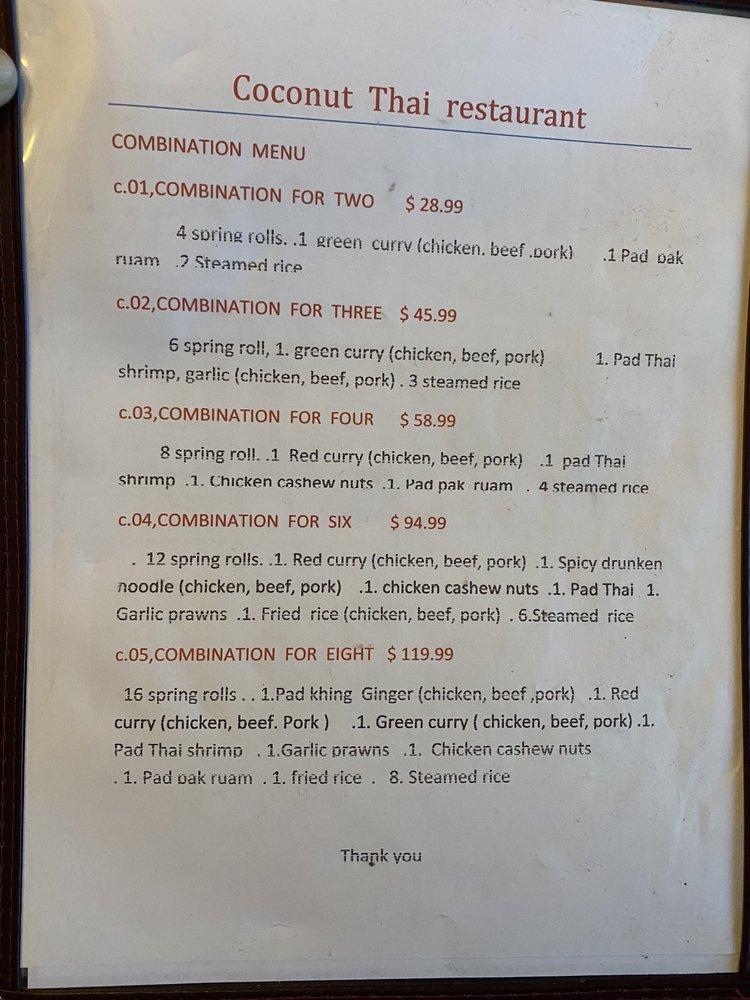 Coconut Thai restaurant
COMBINATION MENU
c.01,COMBINATION FOR TWO $ 28.99
4 spring rolls. .1 green curry (chicken. beef .pork) .1 Pad pak
ruam .2 Steamed rice
c.02,COMBINATION FOR THREE $ 45.99
6 spring roll, 1. green curry (chicken, beef, pork) 1. Pad Thai
shrimp, garlic (chicken, beef, pork) . 3 steamed rice
c.03,COMBINATION FOR FOUR $ 58.99
8 spring roll. .1 Red curry (chicken, beef, pork) .1 pad Thai
shrimp .1. Chicken cashew nuts .1. Pad pak ruam . 4 steamed rice
c.04,COMBINATION FOR SIX $ 94.99
. 12 spring rolls. .1. Red curry (chicken, beef, pork) .1. Spicy drunken
noodle (chicken, beef, pork) .1. chicken cashew nuts .1. Pad Thai 1.
Garlic prawns .1. Fried rice (chicken, beef, pork) . 6.Steamed rice
c.05,COMBINATION FOR EIGHT $ 119.99
16 spring rolls . . 1.Pad khing Ginger (chicken, beef ,pork) .1. Red
curry (chicken, beef. Pork ) .1. Green curry ( chicken, beef, pork) .1.
Pad Thai shrimp . 1.Garlic prawns .1. Chicken cashew nuts
. 1. Pad pak ruam . 1. fried rice . 8. Steamed rice
Thank you